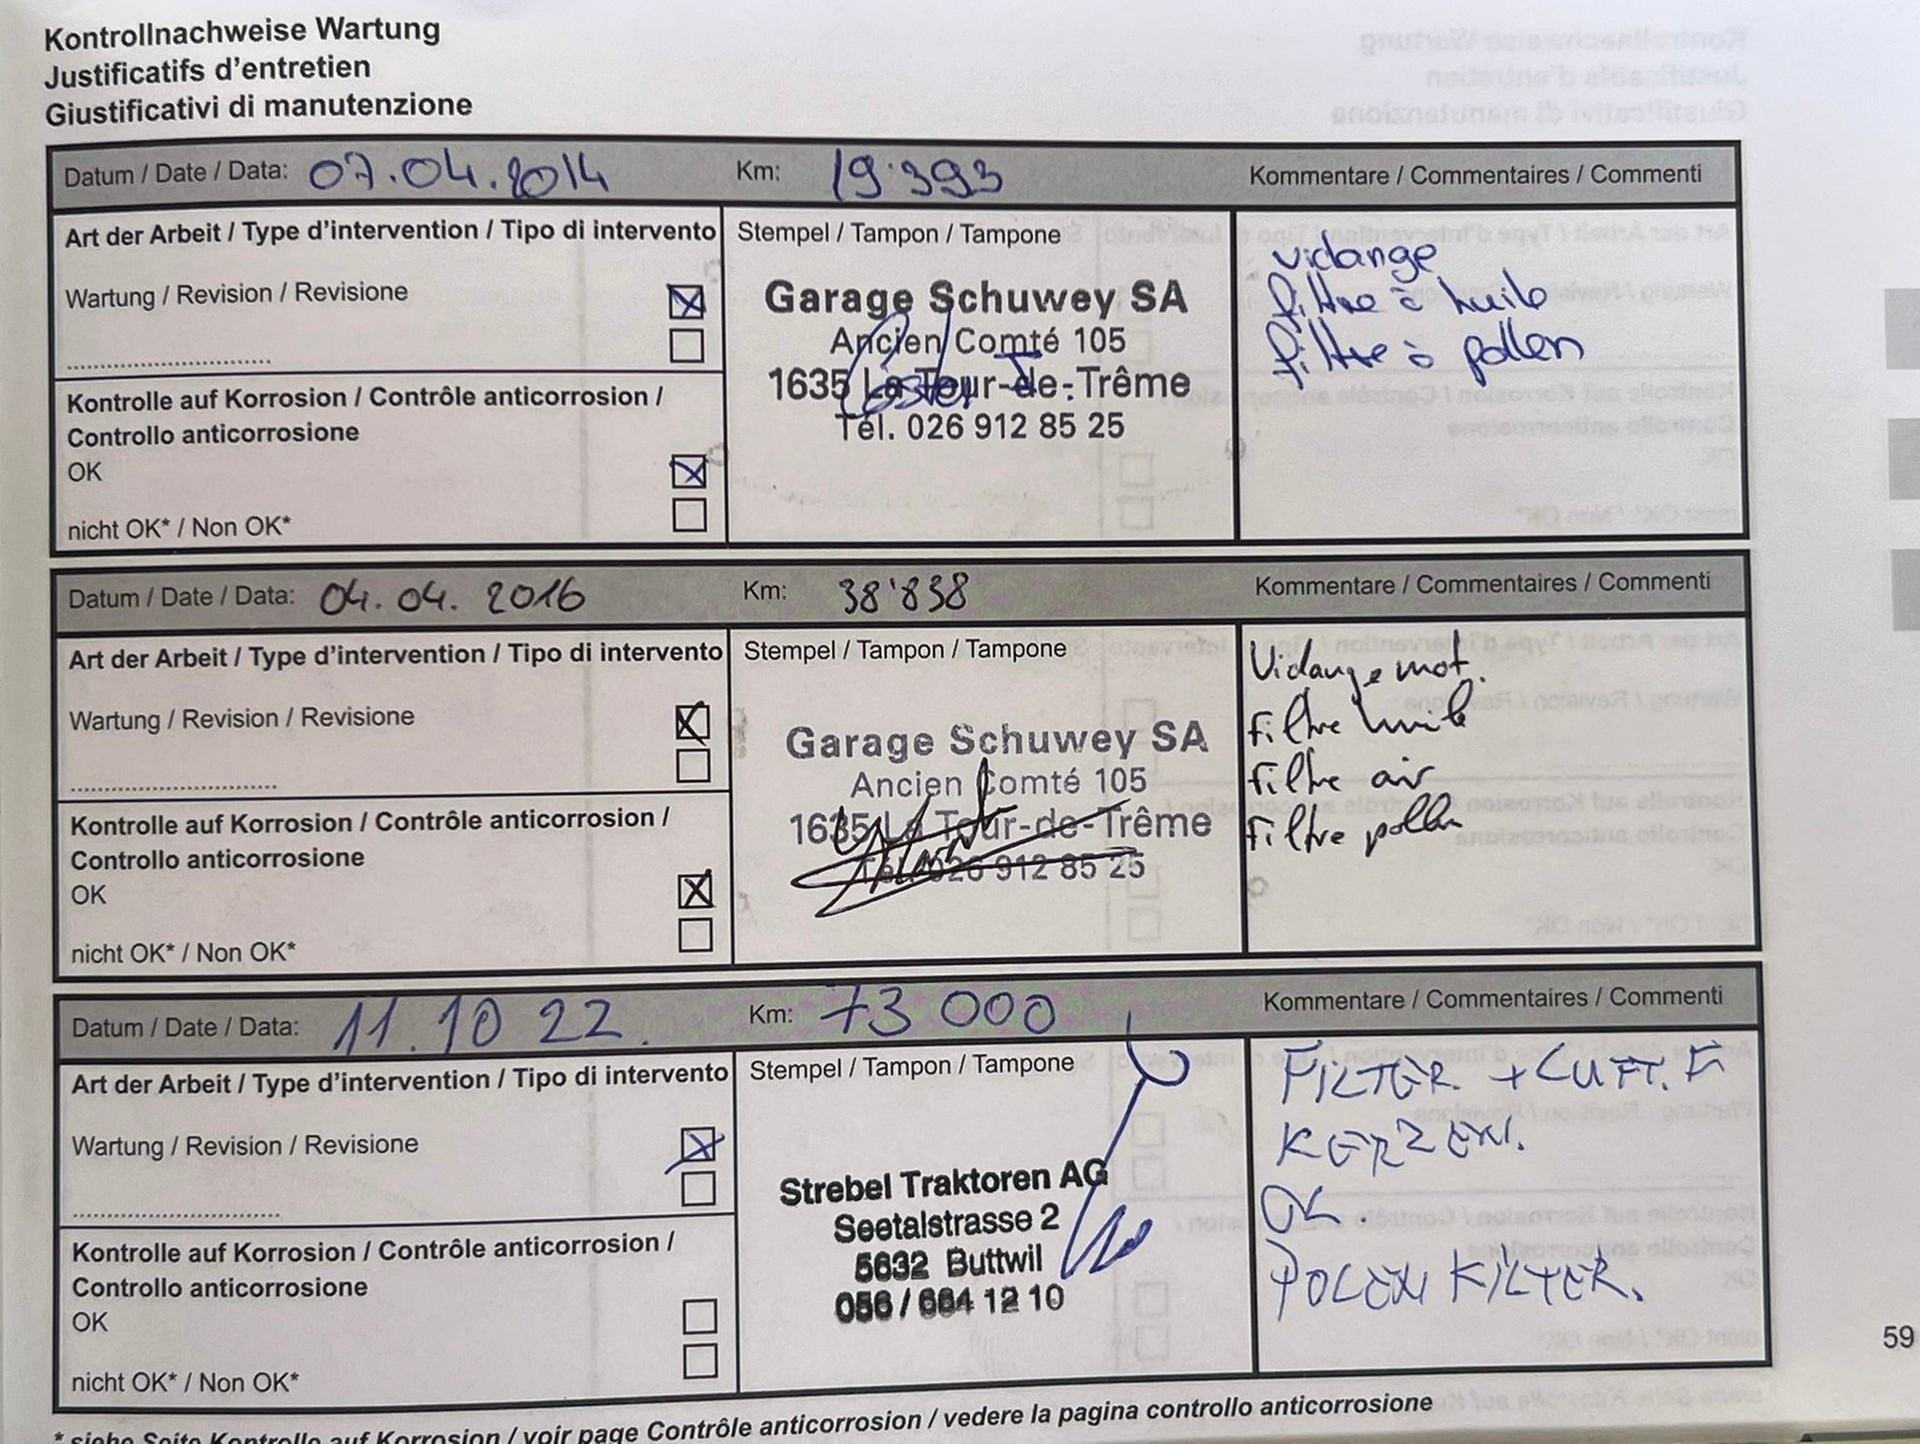 Kontrollnachweise Wartung
Justificatifs d'entretien
Giustificativi di manutenzione
Datum / Date / Data: 07.04.2014 Km: 19'393 Kommentare / Commentaires / Commenti
Art der Arbeit / Type d'intervention / Tipo di intervento
Wartung / Revision / Revisione
Kontrolle auf Korrosion / Contrôle anticorrosion /
Controllo anticorrosione
OK
nicht OK* / Non OK*
Stempel / Tampon / Tampone
Garage Schuwey SA
Ancien Comté 105
1635 La Tour-de-Trême
Tél. 026 912 85 25
vidange
filtre à huile
filtre à pollen
Datum / Date / Data: 04.04.2016 Km: 38'838 Kommentare / Commentaires / Commenti
Art der Arbeit / Type d'intervention / Tipo di intervento
Wartung / Revision / Revisione
Kontrolle auf Korrosion / Contrôle anticorrosion /
Controllo anticorrosione
OK
nicht OK* / Non OK*
Stempel / Tampon / Tampone
Garage Schuwey SA
Ancien Comté 105
1635 La Tour-de-Trême
Tél. 026 912 85 25
Vidange mot.
filtre huile
filtre air
filtre pollen
Datum / Date / Data: 11.10 22. Km: 73 000 Kommentare / Commentaires / Commenti
Art der Arbeit / Type d'intervention / Tipo di intervento
Wartung / Revision / Revisione
Kontrolle auf Korrosion / Contrôle anticorrosion /
Controllo anticorrosione
OK
nicht OK* / Non OK*
Stempel / Tampon / Tampone
Strebel Traktoren AG
Seetalstrasse 2
5632 Buttwil
056 / 664 12 10
FILTER + LUFT. F
KERZEN.
POLEN FILTER.
59
* siehe Seite Kontrolle auf Korrosion / voir page Contrôle anticorrosion / vedere la pagina controllo anticorrosione